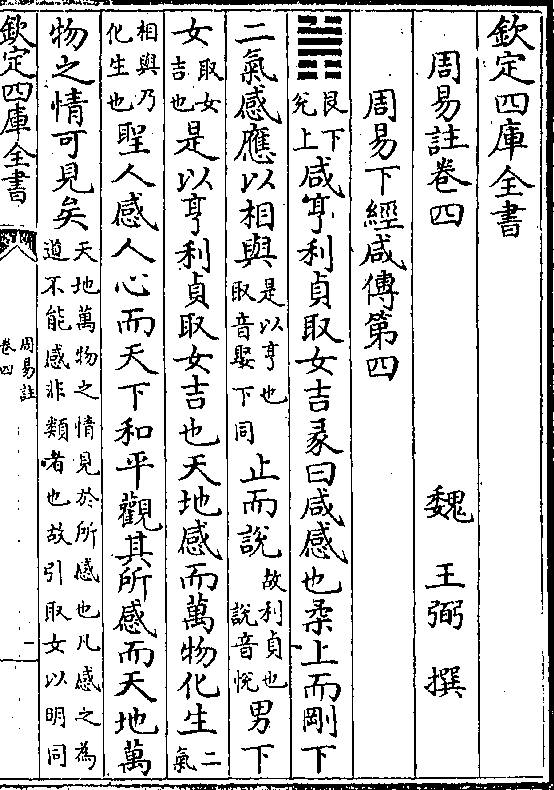 欽定四庫全書
周易註卷四
魏 王弼 撰
周易下經咸傳第四
䷞艮下兌上咸亨利貞取女吉彖曰咸感也柔上而剛下
二氣感應以相與是以亨也取音娶下同止而說故利貞也說音悅男下
女取女吉也是以亨利貞取女吉也天地感而萬物化生二氣
相與乃化生也聖人感人心而天下和平觀其所感而天地萬
物之情可見矣天地萬物之情見於所感也凡感之為道不能感非類者也故引取女以明同
欽定四庫全書
周易註
卷四
一